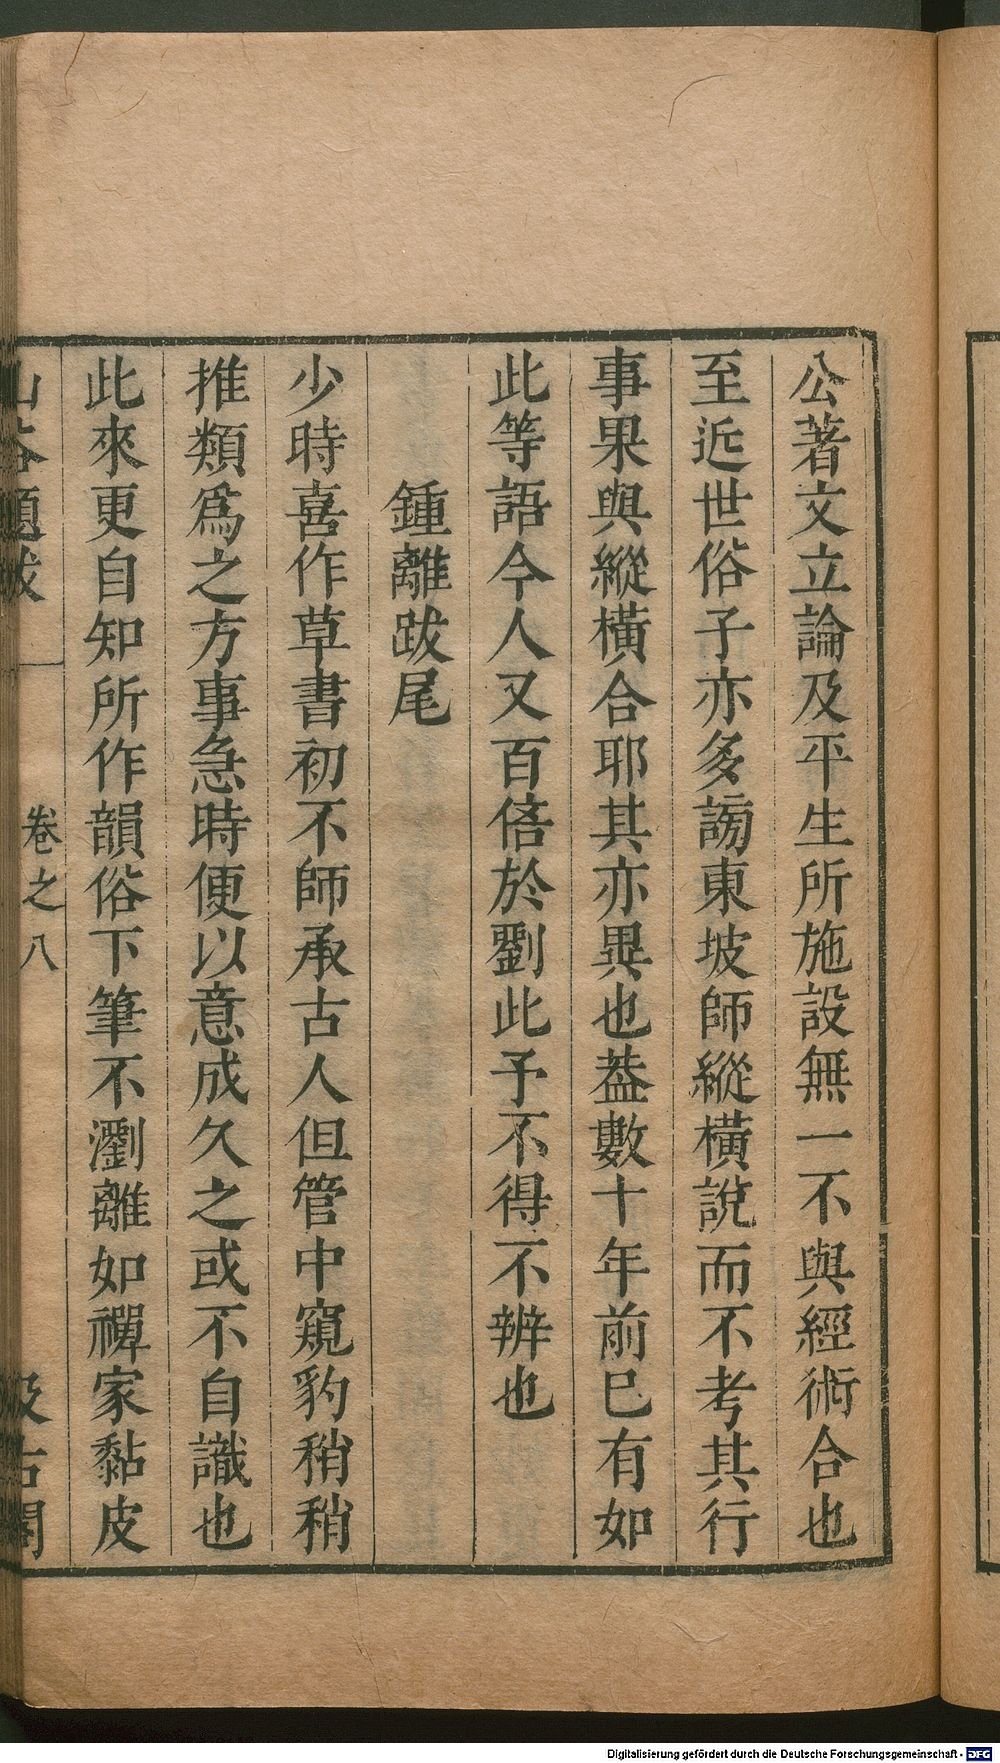 公著文立論及平生所施設無一不與經術合也
至近世俗子亦多謗東坡師縱橫說而不考其行
事果與縱橫合耶其亦異也葢數十年前已有如
此等語今人又百倍於劉此予不得不辨也
鍾離跋尾
少時喜作草書初不師承古人但管中窺豹稍稍
推類爲之方事急時便以意成久之或不自識也
此來更自知所作韻俗下筆不瀏離如禪家黏皮
山谷題跋 卷之八 汲古閣
Digitalisierung gefördert durch die Deutsche Forschungsgemeinschaft - DFG